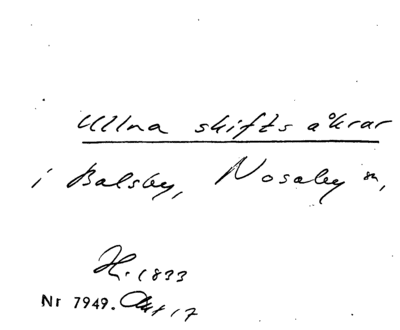 Ullna skifts åkrar
i Balsby, Nosaby sn,
H. 1833
Nr 7949. Akt 17